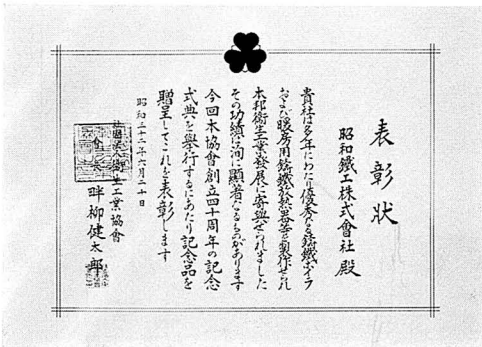 表彰状
昭和鐵工株式會社 殿
貴社は多年にわたり優秀なる鋳鐵ボイラ
および暖房用鋳鐵放熱器等を製作せられ
本邦衛生工業発展に寄與せられました
その功績は洵に顕著なるものがあります
今回本協會創立四十周年の記念
式典を擧行するにあたり記念品を
贈呈してこれを表彰します
昭和三十二年六月二十日
社團法人衛生工業協會
會長 畔柳健太郎